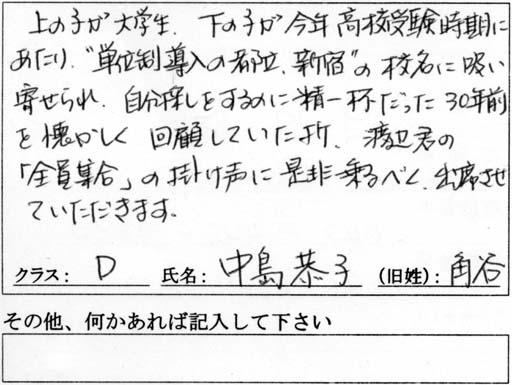 上の子が大学生、下の子が今年高校受験時期に
あたり、“単位制導入の都立、新宿”の校名に吸い
寄せられ、自分探しをするのに精一杯だった30年前
を懐かしく回顧していた折、渡辺君の
「全員集合」の掛け声に是非乗るべく、出席させ
ていただきます。
クラス: D 氏名: 中島恭子 (旧姓): 角谷
その他、何かあれば記入して下さい